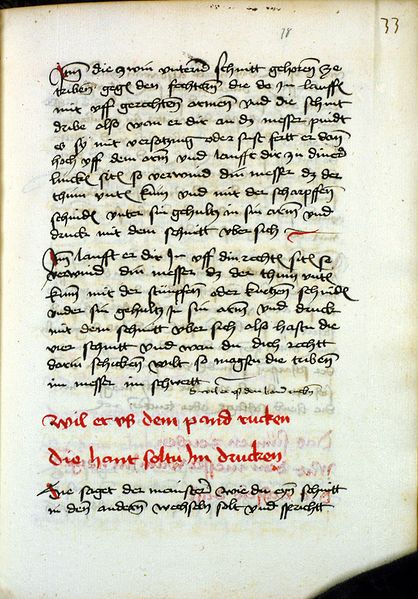 78
33
Itm̄ die zwen vntern̄ schnitt gehoren ze
triben gegē den fechtern die do In lauffē
mit vff gerechten armen vnd die schnit
tribe also wan er dir an dz messer pindt
es sy mit versatzung oder sust fert er dan
hoch vff dem arm vnd laufft dir zu diner
lincken siten so verwind din messer dz der
thum vntē kum vnd mit der scharpffen
schnidē vnter sin gehultz in sin arm vnd
druck mit dem schnitt vber sich
Itm̄ laufft er dir In vff din rechte siten so
verwind din messer dz der thum vntē
kum mit der stumpffen oder kurtzen schnidē
vnder sin gehultz in sin arm vnd druck
mit dem schnitt vber sich also hastu die
vier schnitt vnd wan du dich recht
darin schicken wilt so magstu die triben
im messer im schwertt
wil er vß dem pand rucken
die hant soltu Im drucken
Hie saget der meinster wie du eyn schnitt
in den andern wechseln solt vnd sprichtt